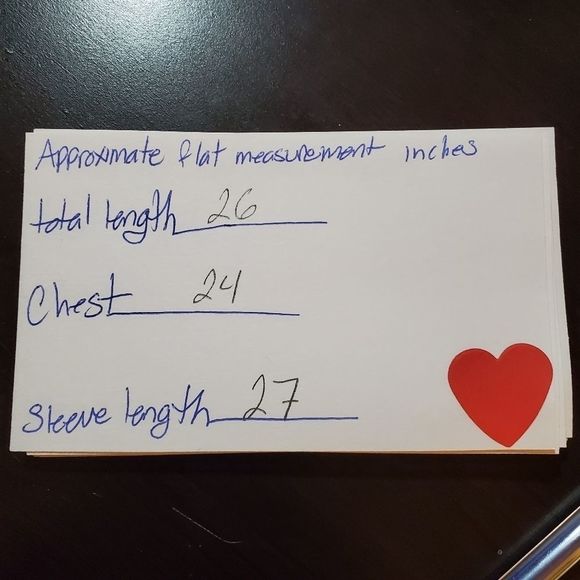 Approximate flat measurement inches
total length 26
Chest 24
Sleeve length 27